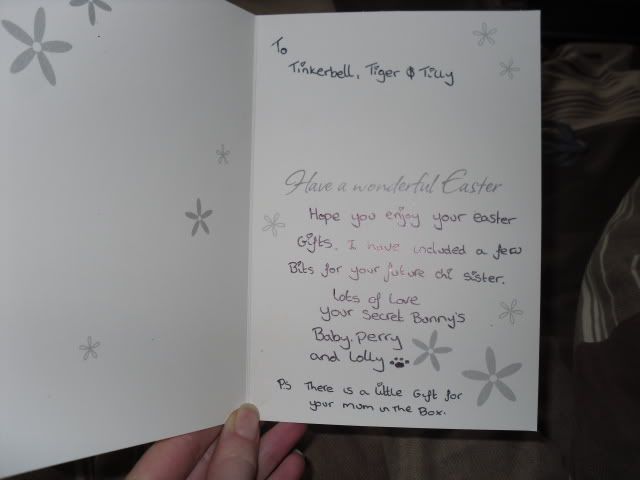 To
Tinkerbell, Tiger & Tilly
Have a wonderful Easter
Hope you enjoy your easter
Gifts. I have included a few
Bits for your future chi sister.
Lots of Love
your Secret Bunny's
Baby, Perry
and Lolly
P.S There is a little Gift for
your mum in the Box.